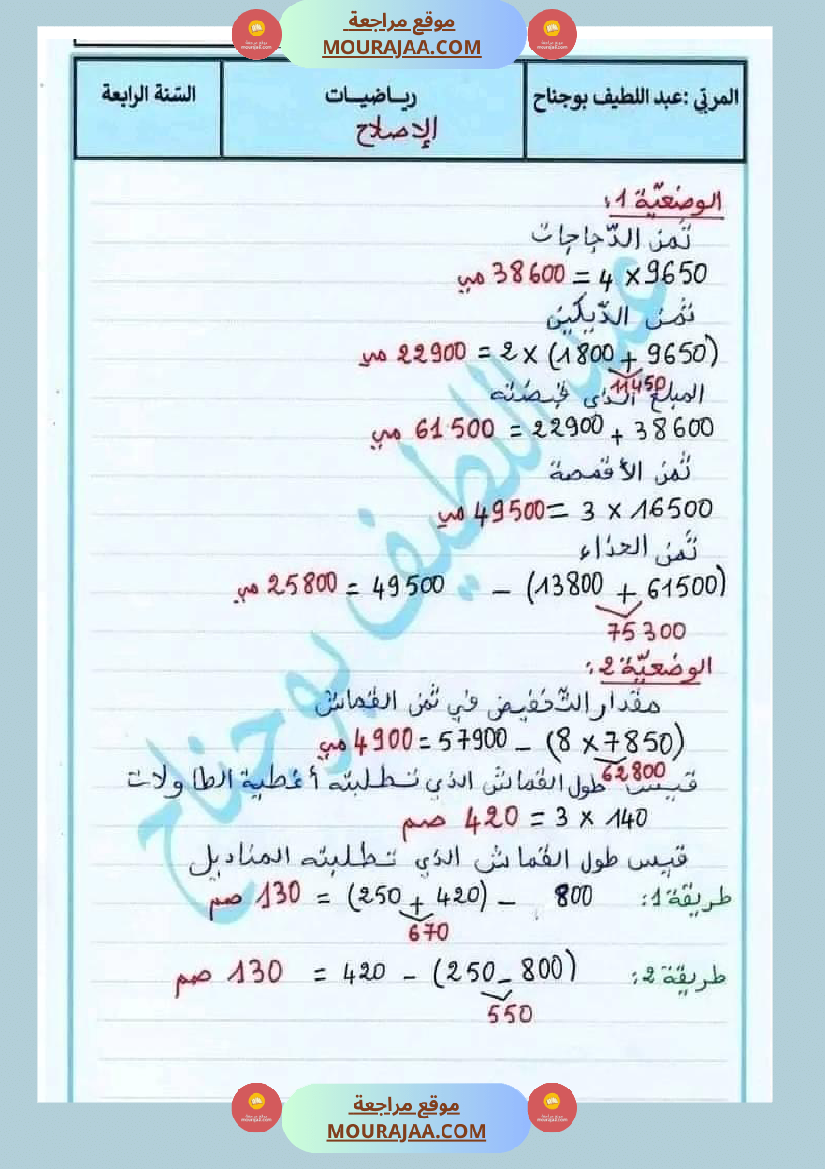 موقع مراجعة
MOURAJAA.COM
المربّي :عبد اللطيف بوجناح
رياضيات
الإصلاح
السّنة الرابعة
الوضعيّة 1:
ثمن الدّجاجات
9650 × 4 = 38600 مي
ثمن الدّيكين
(9650 + 1800) × 2 = 22900 مي
11450
المبلغ الذي قبضته
38600 + 22900 = 61500 مي
ثمن الأقمصة
16500 × 3 = 49500 مي
ثمن الحذاء
(61500 + 13800) – 49500 = 25800 مي
75300
الوضعيّة 2:
مقدار التّخفيض في ثمن القماش
(7850 × 8) – 57900 = 4900 مي
62800
قيس طول القماش الذي تطلبته أغطية الطاولات
140 × 3 = 420 صم
قيس طول القماش الذي تطلبته المناديل
طريقة 1: 800 – (420 + 250) = 130 صم
670
طريقة 2: (800 – 250) – 420 = 130 صم
550
عبد اللطيف بوجناح
موقع مراجعة
MOURAJAA.COM